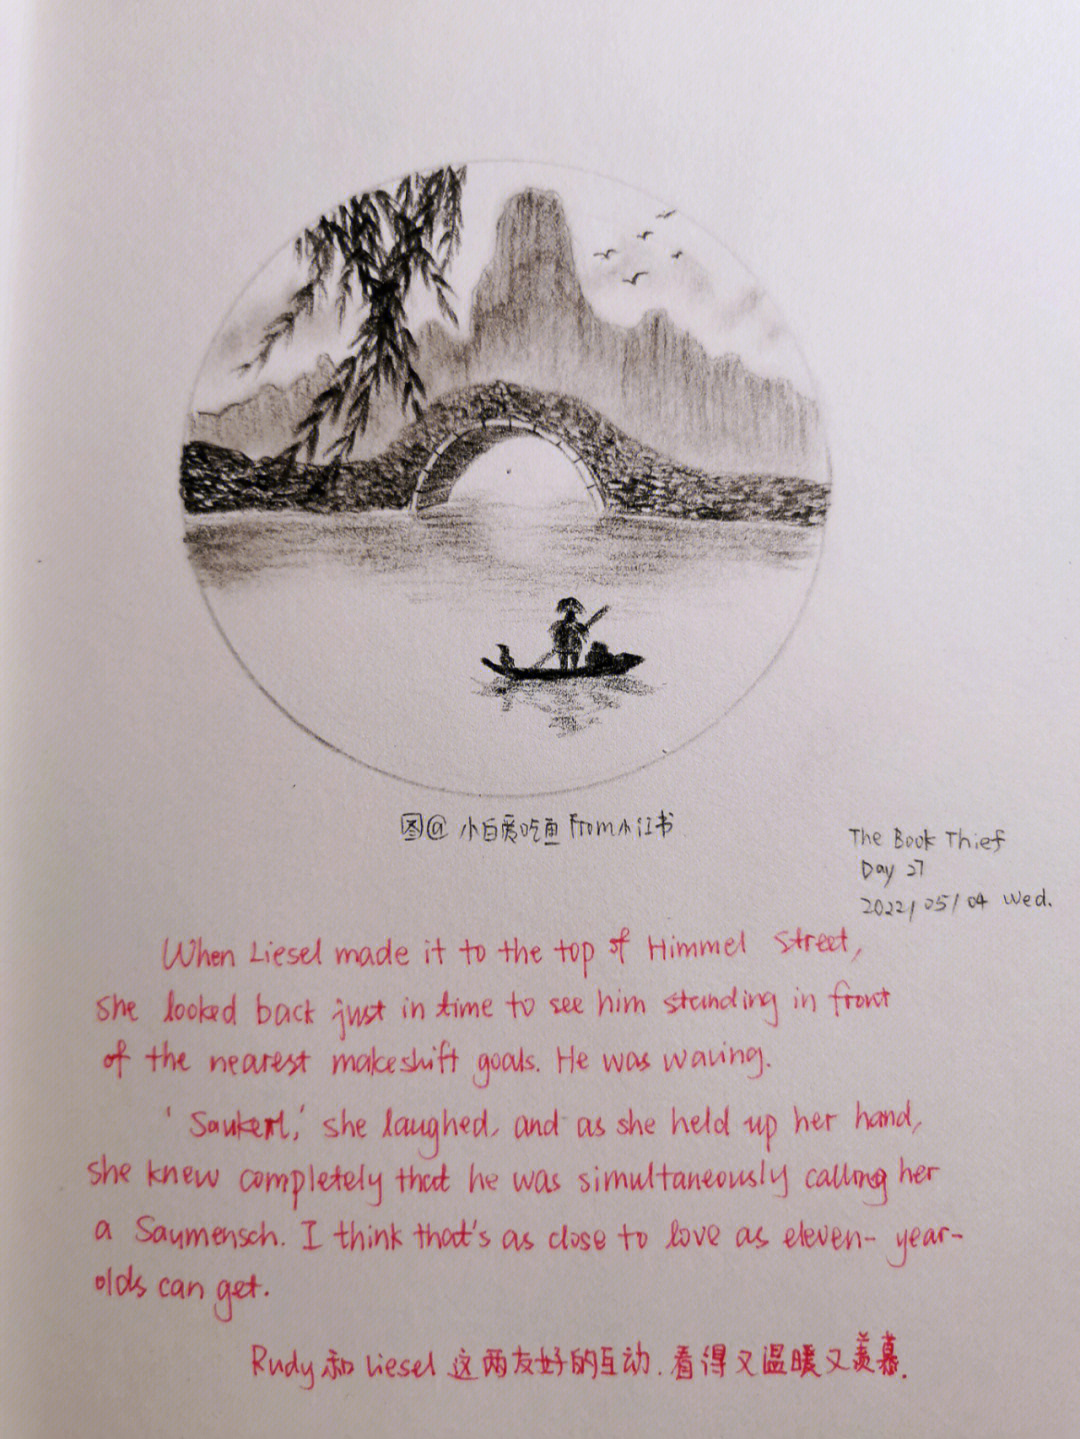 图@小白爱吃鱼 From小红书
The Book Thief
Day 27
2022/05/04 Wed.
When Liesel made it to the top of Himmel Street,
she looked back just in time to see him standing in front
of the nearest makeshift goals. He was waving.
'Saukerl,' she laughed, and as she held up her hand,
she knew completely that he was simultaneously calling her
a Saumensch. I think that's as close to love as eleven-year-
olds can get.
Rudy和Liesel这两友好的互动.看得又温暖又羡慕.